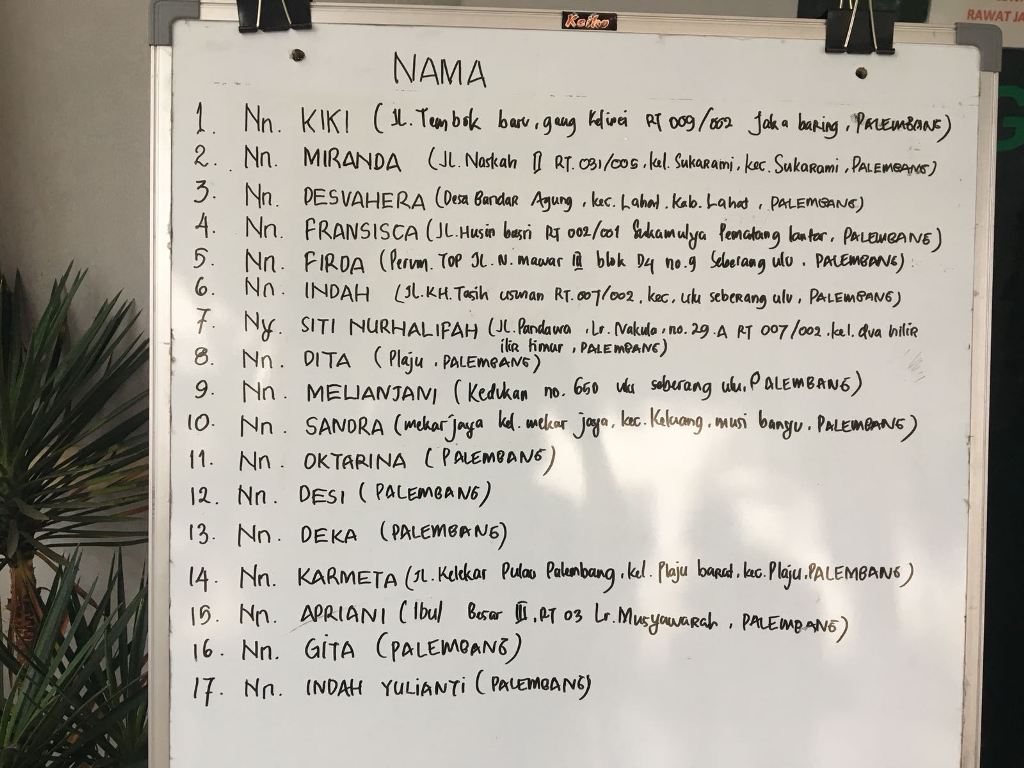 Keiko
RAWAT JA
G
NAMA
1. Nn. KIKI (JL. Tembok baru, gang Kelinci RT 009/002 Jaka baring, PALEMBANG)
2. Nn. MIRANDA (JL. Naskah II RT. 031/005, kel. Sukarami, kec. Sukarami, PALEMBANG)
3. Nn. DESVAHERA (Desa Bandar Agung, kec. Lahat. Kab. Lahat, PALEMBANG)
4. Nn. FRANSISCA (JL. Husin basri RT 002/001 Sukamulya Pematang lantar, PALEMBANG)
5. Nn. FIRDA (Perum. TOP JL. N. mawar III blok D4 no.9 Seberang ulu. PALEMBANG)
6. Nn. INDAH (JL. KH. Tasih usman RT. 007/002, kec, ulu seberang ulu, PALEMBANG)
7. Ny. SITI NURHALIFAH (JL. Pandawa, Lr. Nakula, no. 29. A RT 007/002. kel. dua hilir
ilir timur, PALEMBANG)
8. Nn. DITA (Plaju, PALEMBANG)
9. Nn. MELIANJANI (Kedukan no. 650 ulu seberang ulu, PALEMBANG)
10. Nn. SANDRA (mekar jaya kel. mekar jaya, kec. Keluang, musi banyu, PALEMBANG)
11. Nn. OKTARINA (PALEMBANG)
12. Nn. DESI (PALEMBANG)
13. Nn. DEKA (PALEMBANG)
14. Nn. KARMETA (JL. Kelekar Pulau Palembang, kel. Plaju barat, kec. Plaju. PALEMBANG)
15. Nn. APRIANI (Ibul Besar III, RT 03 Lr. Musyawarah, PALEMBANG)
16. Nn. GITA (PALEMBANG)
17. Nn. INDAH YULIANTI (PALEMBANG)